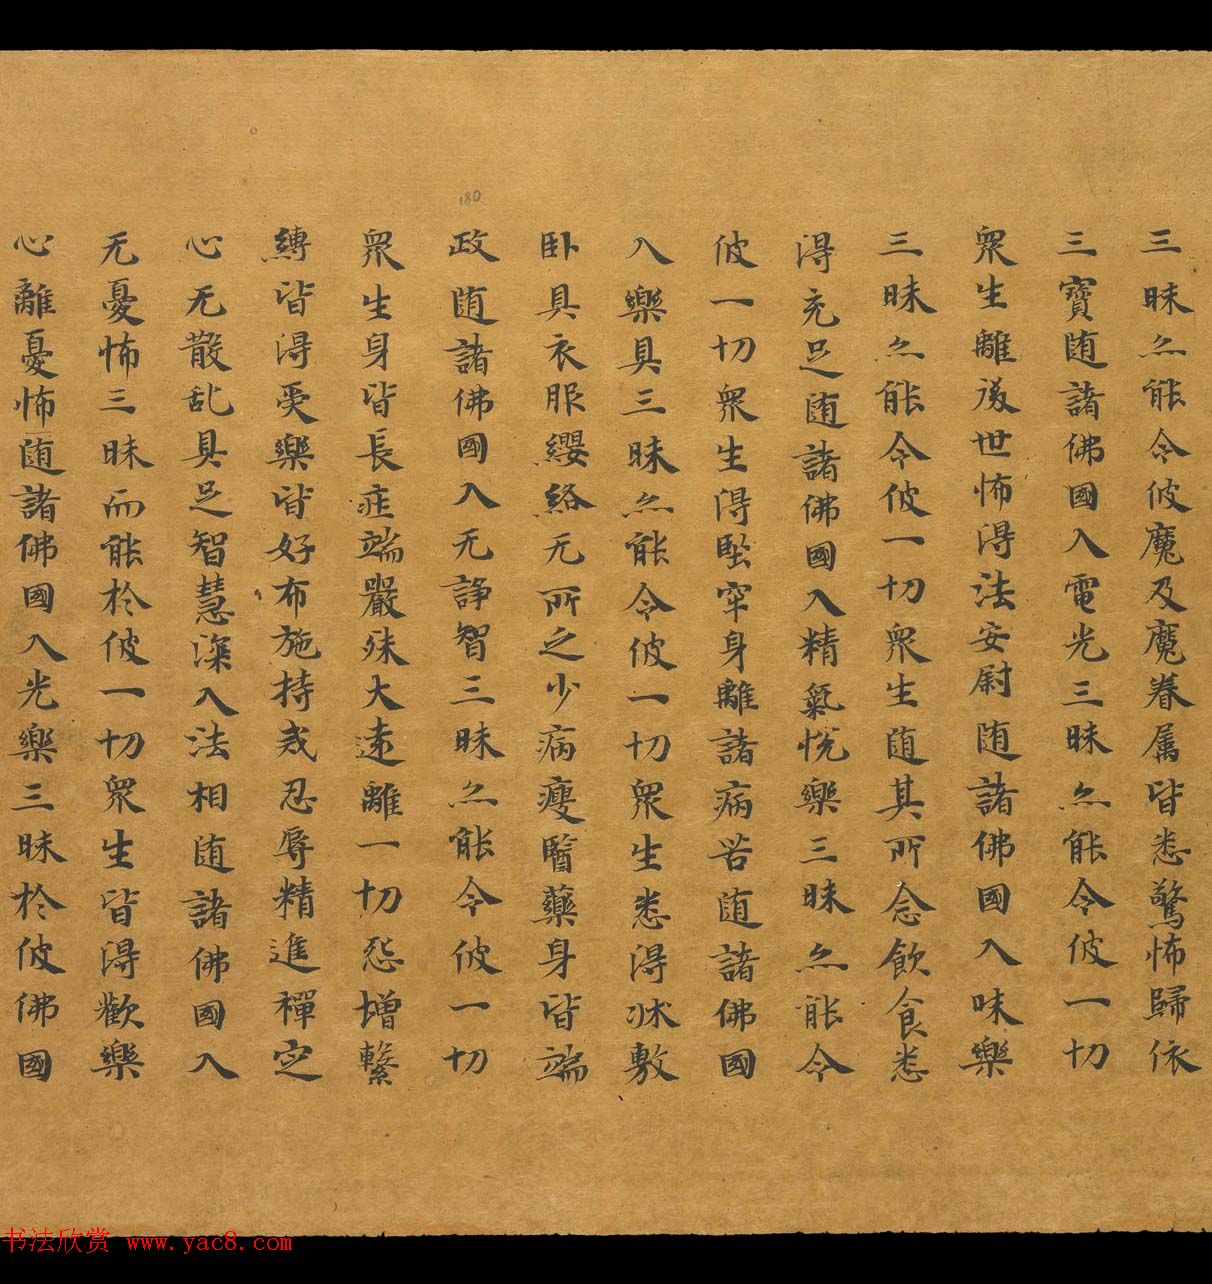 三昧亦能令彼魔及魔眷属皆悉驚怖歸依
三寶随諸佛國入電光三昧亦能令彼一切
衆生離後世怖得法安尉随諸佛國入味樂
三昧亦能令彼一切衆生随其所念飲食悉
得充足随諸佛國入精氣悅樂三昧亦能令
彼一切衆生得堅牢身離諸病苦随諸佛國
入樂具三昧亦能令彼一切衆生悉得床敷
卧具衣服纓絡无所乏少病瘦醫藥身皆端
政随諸佛國入无諍智三昧亦能令彼一切
衆生身皆長疰端嚴殊大遠離一切怨增繫
縛皆得受樂皆好布施持戒忍辱精進禪定
心无散乱具足智慧深入法相随諸佛國入
无憂怖三昧而能於彼一切衆生皆得歡樂
心離憂怖随諸佛國入光樂三昧於彼佛國
180
书法欣赏 www.yac8.com